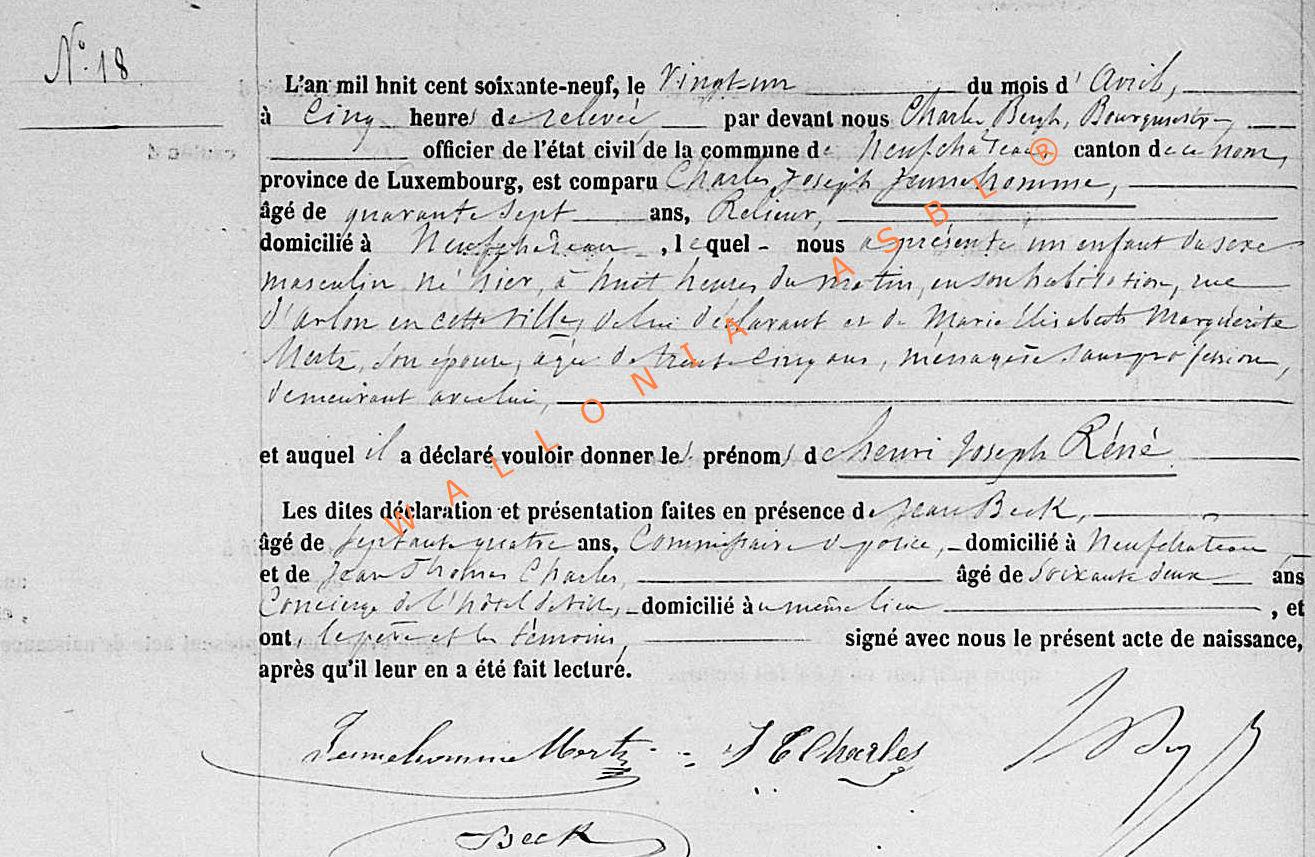 N° 18
L'an mil hnit cent soixante-neuf, le Vingt-un du mois d'Avril,
à Cinq heures de relevée, par devant nous Charles Bergh, Bourgmestre,
officier de l'état civil de la commune de Neufchâteau, canton de ce nom,
province de Luxembourg, est comparu Charles Joseph Jeunehomme,
âgé de quarante sept ans, Relieur,
domicilié à Neufchâteau, lequel - nous a présenté un enfant du sexe
masculin né hier, à huit heures du matin, en son habitation, rue
d'arlon en cette ville, de lui déclarant et de Marie Elisabeth Marguerite
Mertz, son épouse, âgée de trente cinq ans, ménagère sans profession,
demeurant avec lui,
et auquel il a déclaré vouloir donner les prénoms de henri Joseph Réné
Les dites déclaration et présentation faites en présence de Jean Beck,
âgé de septante quatre ans, Commissaire de police, domicilié à Neufchâteau
et de Jean Thomas Charles, âgé de soixante deux ans
Concierge de l'hôtel de ville, domicilié à u même lieu, et
ont, le père et les témoins, signé avec nous le présent acte de naissance,
après qu'il leur en a été fait lecture.
Jeunehomme Mertz J T Charles
Beck
WALLONIA ASBL ®